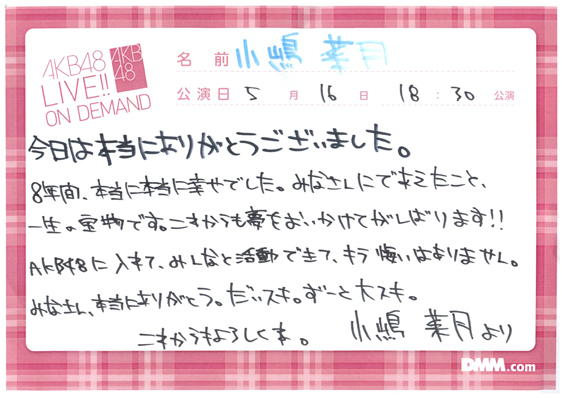 AKB48
LIVE!!
ON DEMAND
AKB
48
名前 小嶋 菜月
公演日 5月 16日 18:30 公演
今日は本当にありがとうございました。
8年間、本当に本当に幸せでした。みなさんにであえたこと、
一生の宝物です。これからも夢をおいかけてがんばります!!
AKB48に入れて、みんなと活動できて、もう悔いはありません。
みなさん、本当にありがとう。だいスキ。ずーと大スキ。
これからもよろしくね。 小嶋 菜月より
DMM.com